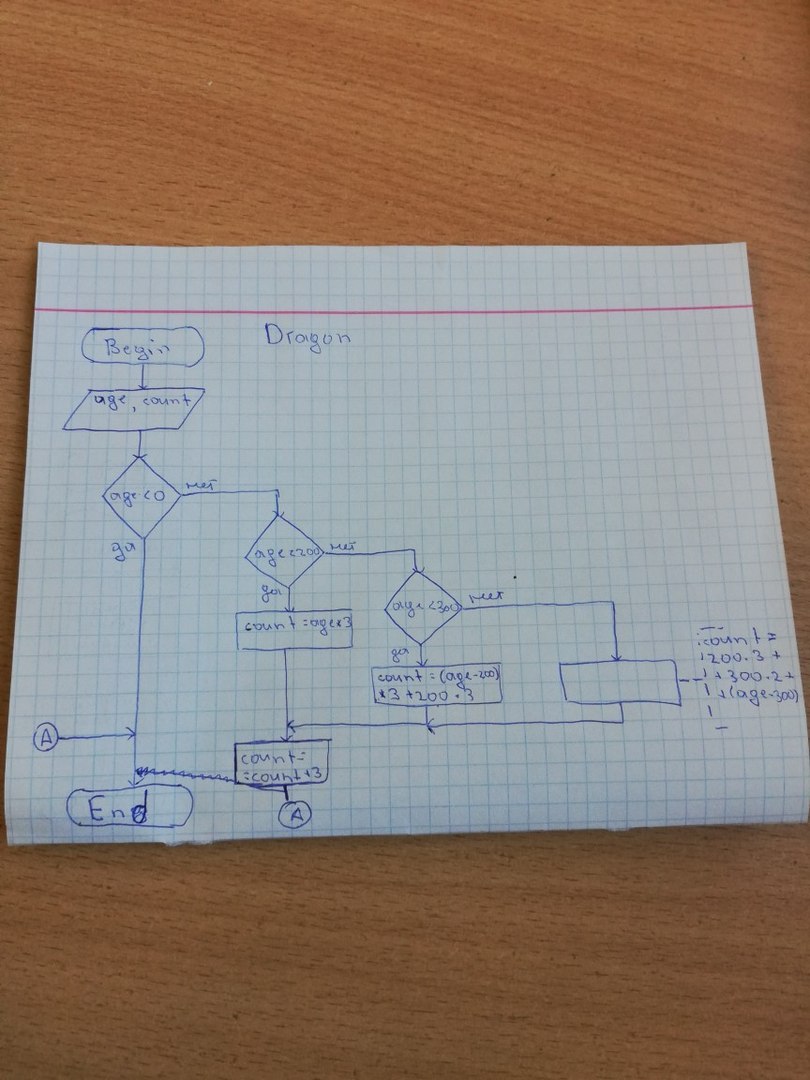 Dragon
Begin
age, count
age<0
нет
да
age<200
нет
да
count=age*3
age<300
нет
да
count=(age-200)
*3+200·3
count=
200·3+
+300·2+
+(age-300)
A
count=
=count+3
A
End